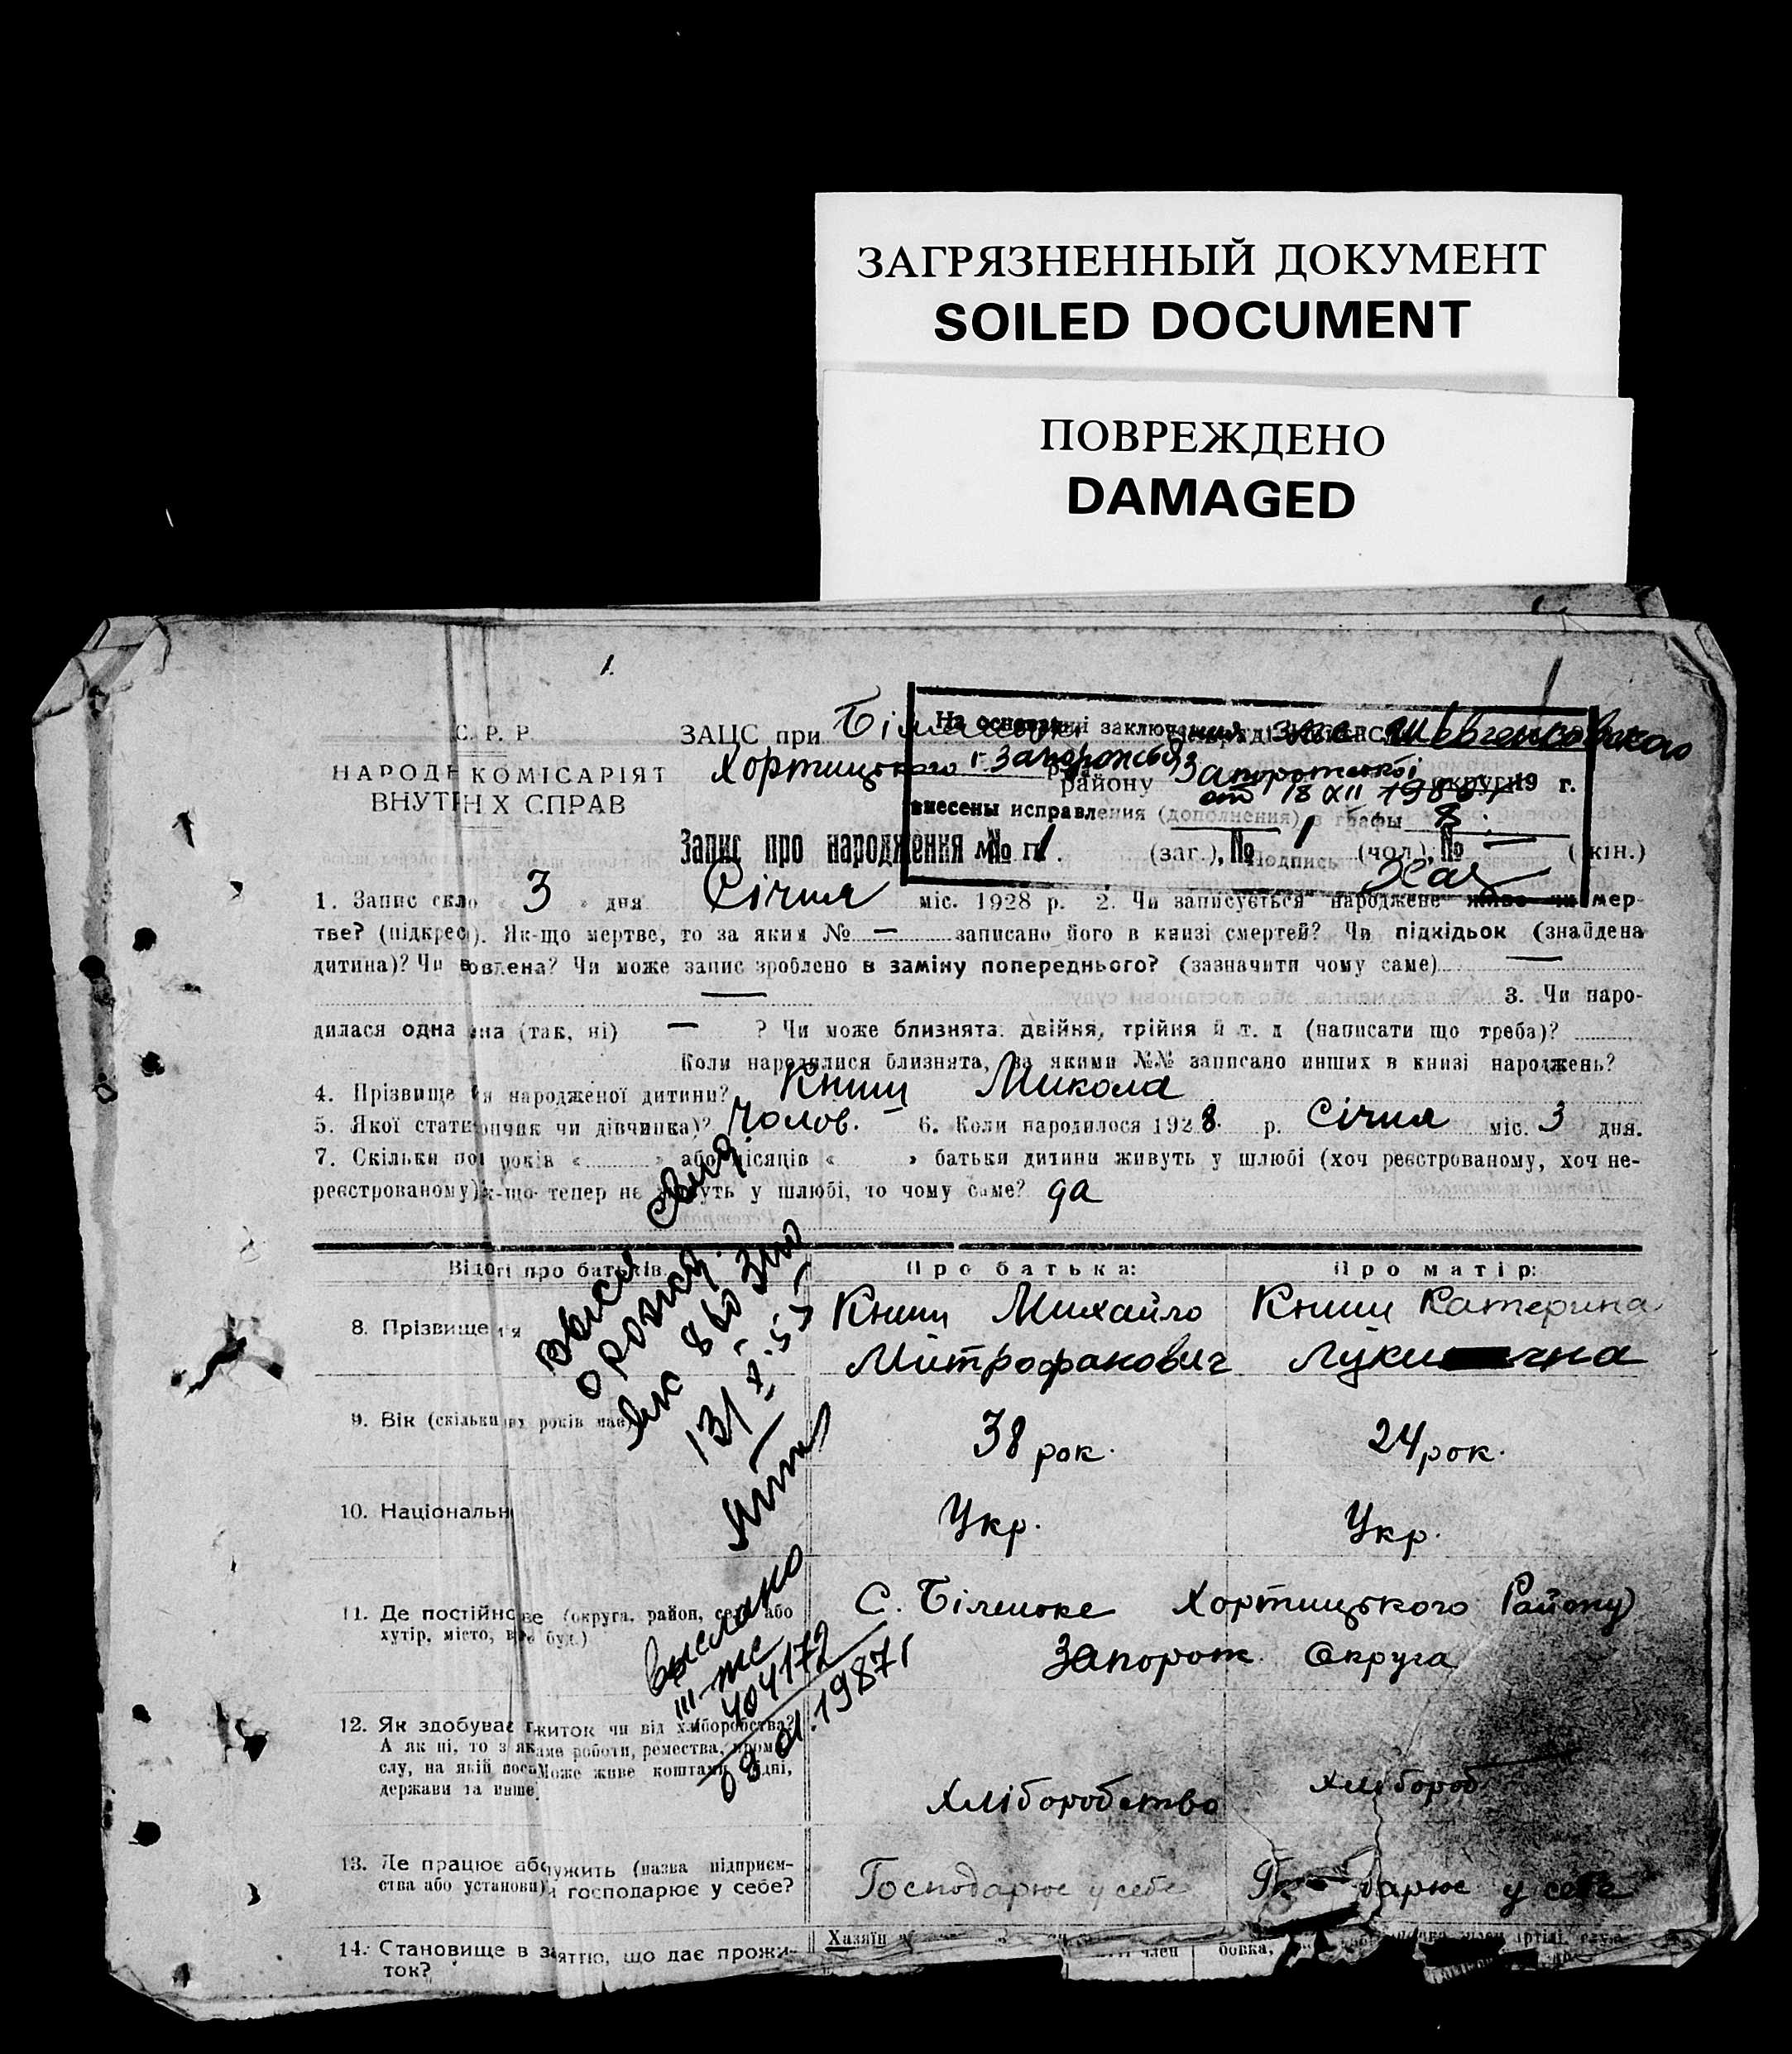 ЗАГРЯЗНЕННЫЙ ДОКУМЕНТ
SOILED DOCUMENT
ПОВРЕЖДЕНО
DAMAGED
1.
С. Р. Р.
НАРОДН КОМІСАРІЯТ
ВНУТРІН Х СПРАВ
ЗАЦС при
Хортицького району Запорожської округи
На основании заключения загс Шевченковского
г. Запорожья
от 18 XII 1986 19 г.
внесены исправления (дополнения) в графы 8.
Подпись
Запис про народження № 1. (заг.), № 1 (чол.), № — (жін.)
1. Запис скло « 3 » дня Січня міс. 1928 р. 2. Чи записується народжене живе чи мер-
тве? (підкрес ). Як-що мертве, то за яким № — записано його в книзі смертей? Чи підкідьок (знайдена
дитина)? Чи Чи може запис зроблено в заміну попереднього? (зазначити чому саме) —
— 3. Чи наро-
дилася одна (так, ні) — ? Чи може близнята: двійня, трійня й т. д (написати що треба)?
Коли народилися близнята, за якими №№ записано инших в книзі народжень?
4. Прізвище народженої дитини? Книш Микола
5. Якої стати чи дівчинка)? Чолов. 6. Коли народилося 1928 р. Січня міс. 3 дня.
7. Скільки років « » або місяців « » батьки дитини живуть у шлюбі (хоч реєстрованому, хоч не-
реєстрованому) тепер не живуть у шлюбі, то чому саме? да
Відомості про батьків Про батька: Про матір:
8. Прізвище Книш Михайло Книш Катерина
Митрофанович Луки чна
9. Вік (скільки років має) 38 рок. 24 рок.
10. Національн Укр. Укр.
11. Де постійно (округа, район, село або
хутір, місто, буд.)
С. Біленьке Хортицького Району
Запорож. Округа
12. Як здобуває житок чи від хліборобства?
А як ні, то з роботи, ремества, пром
слу, на якій Може живе коштами
держави та инше.
Хліборобство Хлібороб
13. Де працює служить (назва підприєм-
ства або установи) господарює у себе?
Господарює у себе дарює у себе
14. Становище в що дає прожи-
ток?
Хазяїн член
выслано
404172
09 01.1987г